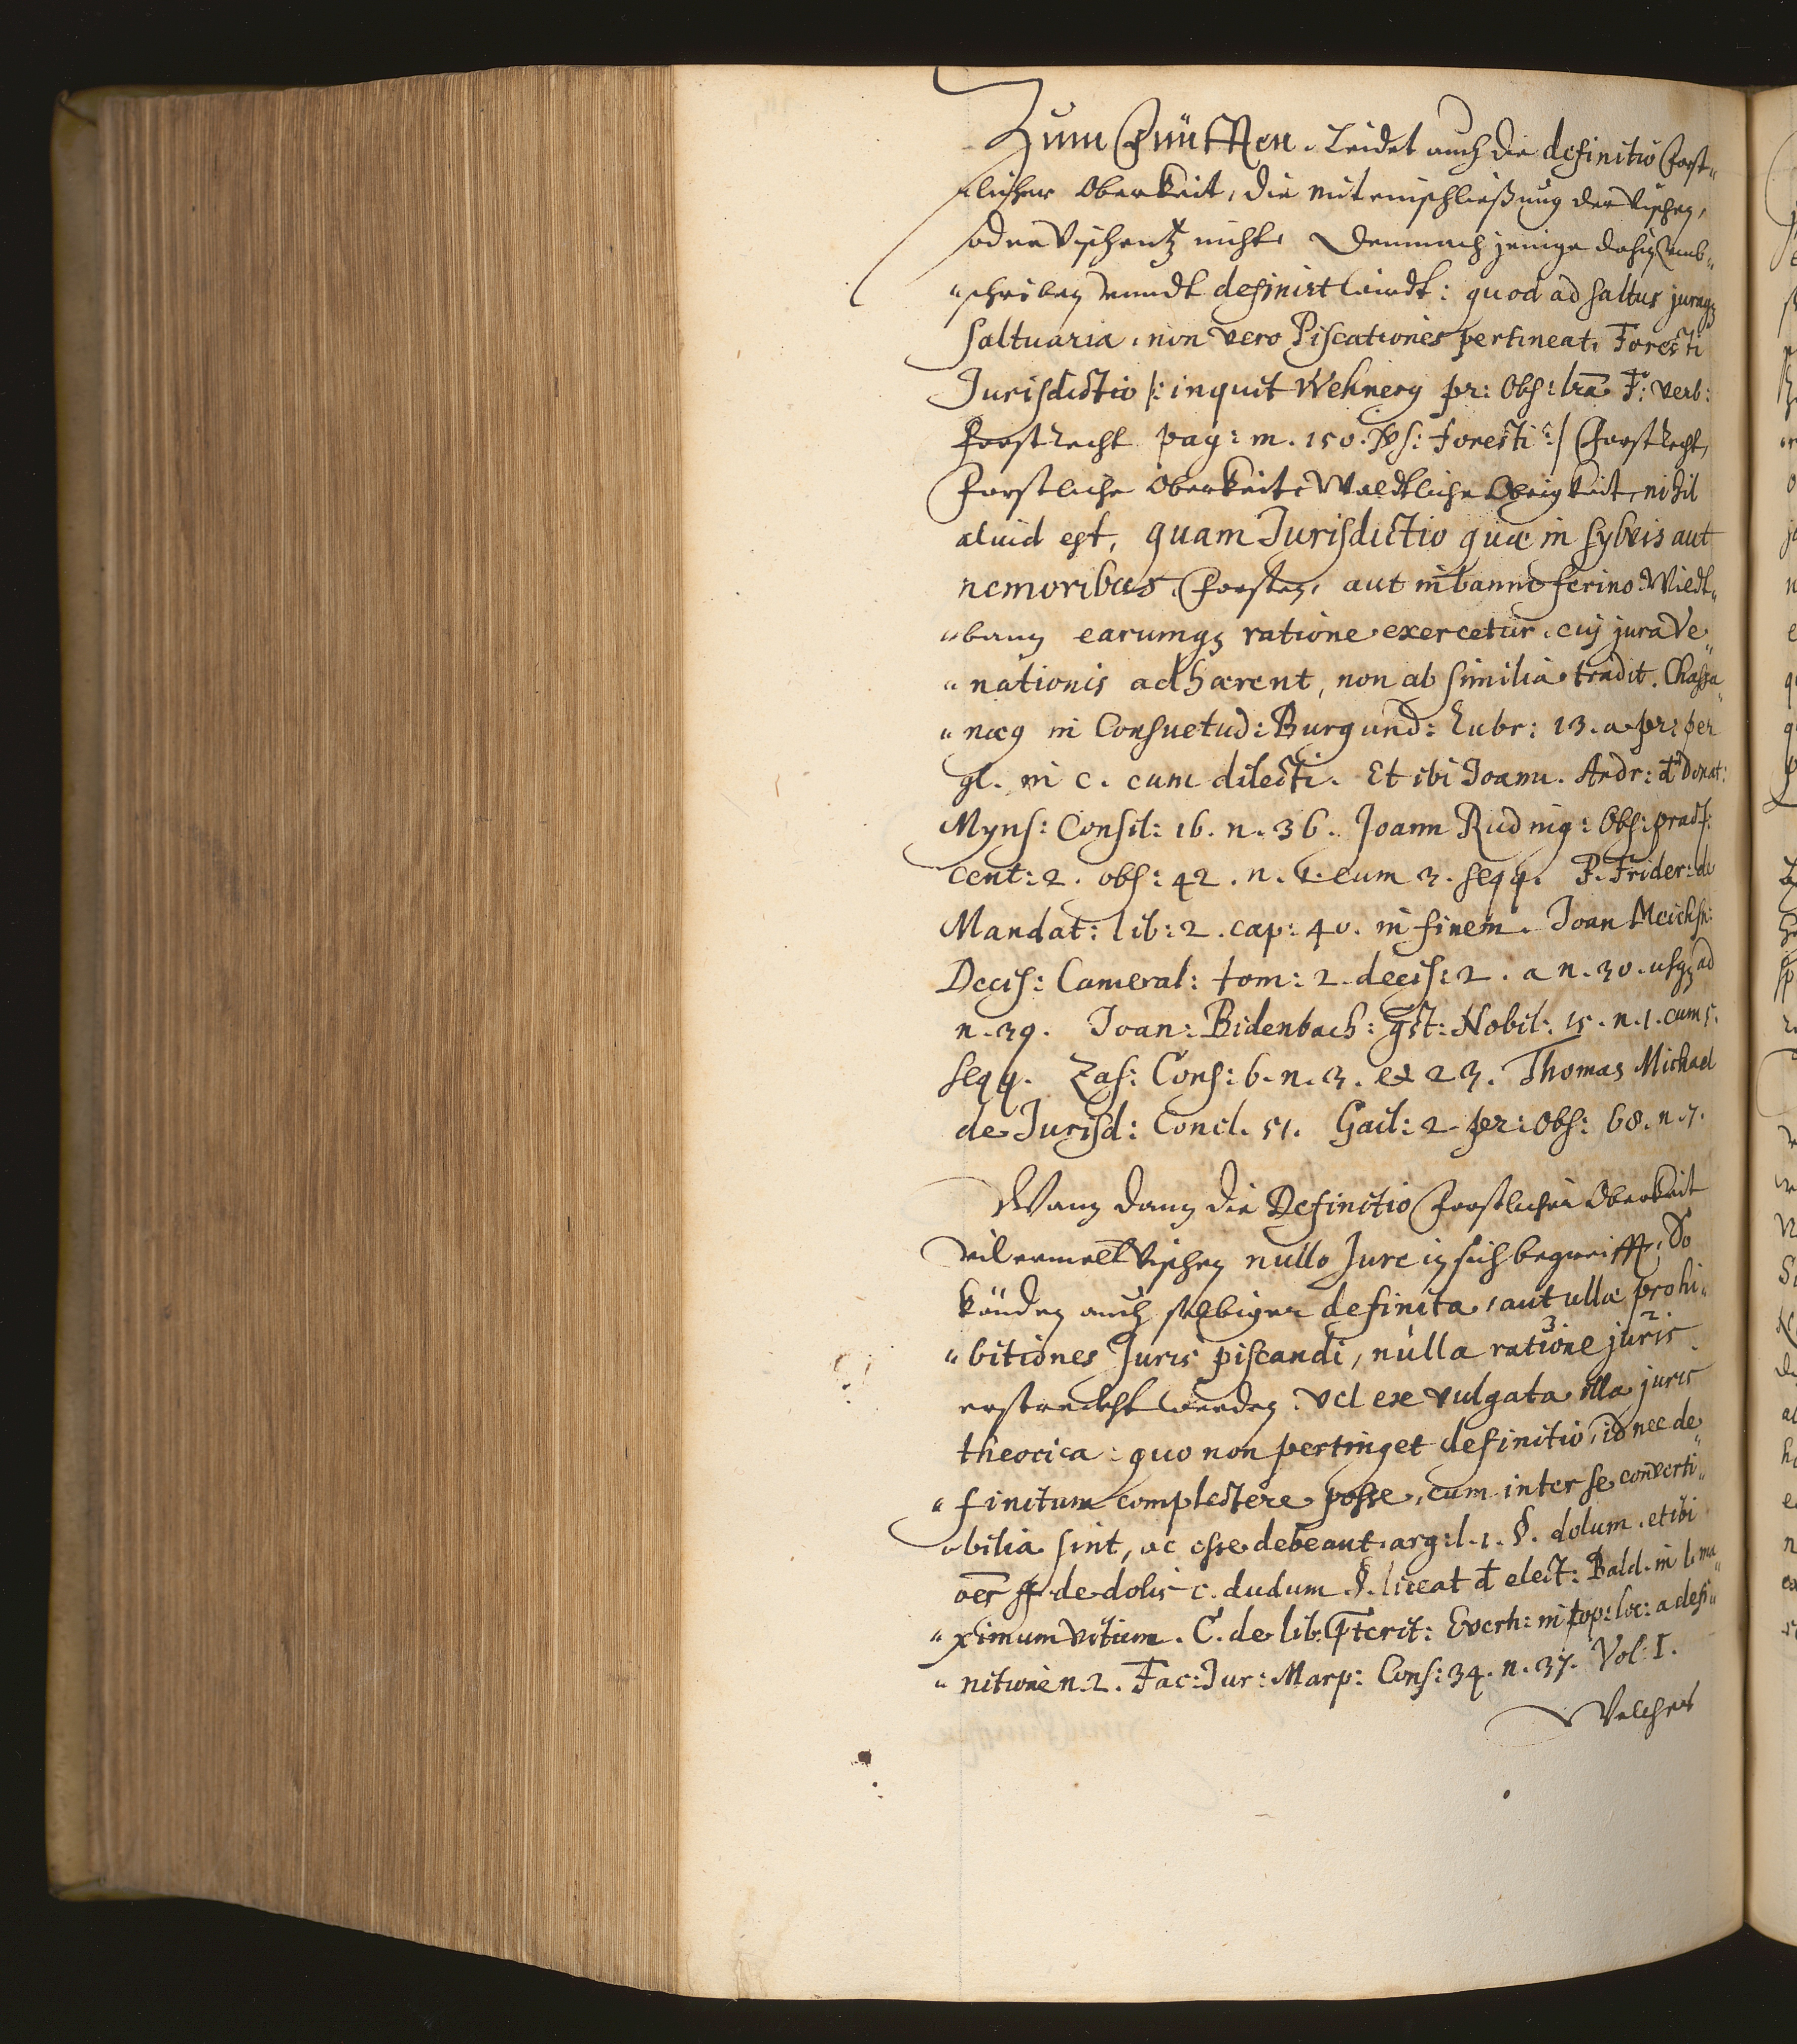 Zum Fünfften. Leidet auch die definitio Forst„
licher Oberkeit, die miteinschließung der Vischen,
oder Vischentz nicht. Demnach jenige dahin umb„
„schriben unndt definirt wirdt: quod ad saltus juraq3
saltuaria, non vero Piscationes pertineat. Foresti
Jurisdictio |: inquit Wehnerg pr: Obs: lra F: verb:
Forstrecht pag: m. 150. vs: foresti :| Forstrecht,
Forstliche Oberkeit, Waldtliche Obrigkeit, nihil
aliud est, quam Jurisdictio quæ in sylvis aut
nemoribus, Forsten, aut in banno ferino Wildt„
„bann earumq3 ratione exercetur, cuj jura Ve„
„nationis adhærent, non absimilia tradit. Chassa„
„næg in Consuetud: Burgund: Rubr: 13. a pr: per
gl. in c. cum dilecti. Et ibi Joann. Andr: d Donat:
Myns: Consil: 16. n. 36. Joann Rudnig: Obs: pract:
Cent: 2. obs: 42. n. 1. cum 3. seqq. P. Frider: de
Mandat: lib: 2. cap: 40. in finem. Joan Meichsn:
Decis: Cameral: tom: 2. decis: 2. a n. 30. usq3 ad
n. 39. Joan: Bidenbach: qst: Nobil: 15. n. 1. cum 5.
seqq. Zas: Cons: 6. n. 3. et 23. Thomas Michael
de Jurisd: Concl. 51. Gail: 2. per: Obs: 68. n. 7.
Wann dann die Definitio Forstlicher Oberkeit
vilermelt Vischen nullo Jure in sich begreifft, So
könden auch selbiger definita, aut ullæ prohi„
„bitiones Juris piscandi, nulla ratione juris
erstreckht werden. vel ex vulgata illa juris
theorica: quo non pertinget definitio, id nec de„
„finitum complectere posse, cum inter se converti„
„bilia sint, ac esse debeant. arg: l. 1. §. dolum. et ibi
ff de dolis c. dudum §. liceat d elect: Bald. in l. ma„
„ximum vitium. C. de lib. pterit: Everh: in top: loc: a defi„
„nitione n. 2. Fac: Jur: Marp: Cons: 34. n. 37. Vol: I.
Welches